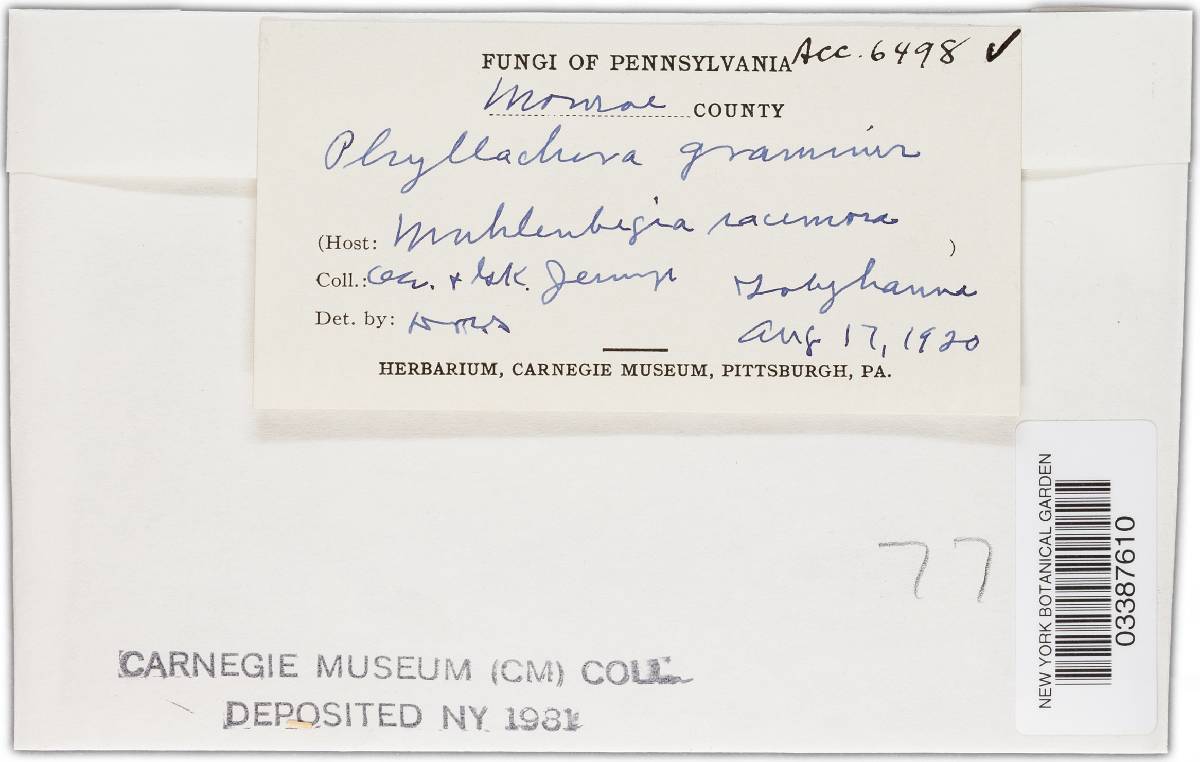 FUNGI OF PENNSYLVANIA Acc. 6498 ✓
Monroe COUNTY
Phyllachora graminis
(Host: Muhlenbegia racemosa )
Coll.: & G.K. Jennings Tobyhanna
Det. by:
Aug 17, 1920
HERBARIUM, CARNEGIE MUSEUM, PITTSBURGH, PA.
77
CARNEGIE MUSEUM (CM) COLL.
DEPOSITED NY 1981
NEW YORK BOTANICAL GARDEN
03387610